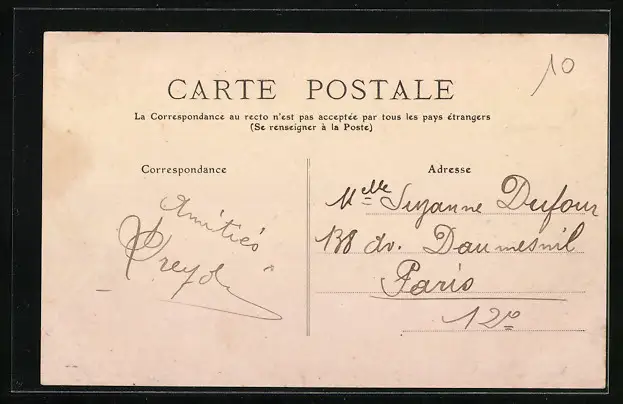 10
CARTE POSTALE
La Correspondance au recto n'est pas acceptée par tous les pays étrangers
(Se renseigner à la Poste)
Correspondance
Adresse
Amitiés
Melle Suzanne Dufour
138 av. Daumesnil
Paris
12e